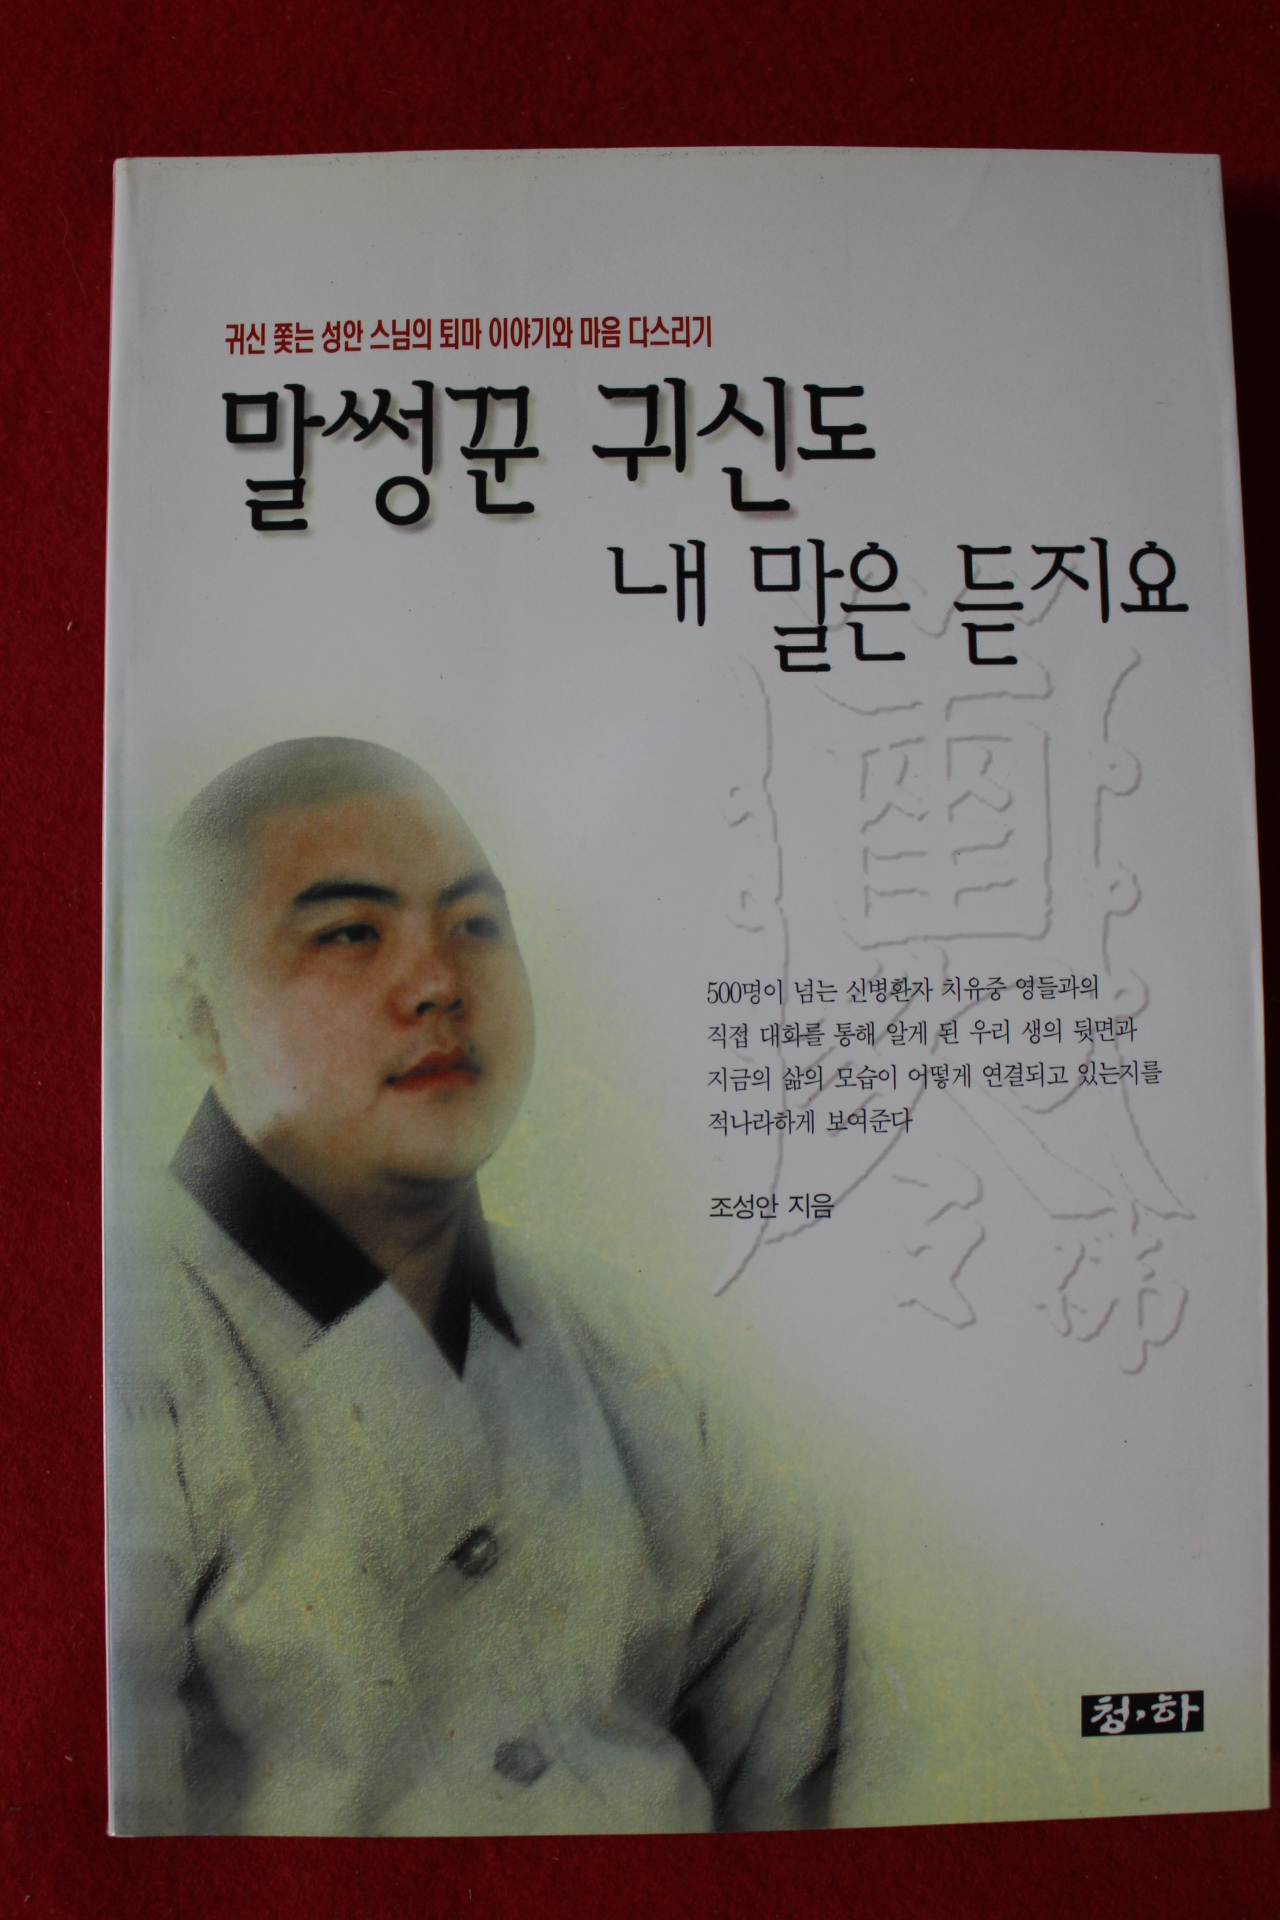 귀신 쫓는 성안 스님의 퇴마 이야기와 마음 다스리기
말썽꾼 귀신도
내 말은 듣지요
500명이 넘는 신병환자 치유중 영들과의
직접 대화를 통해 알게 된 우리 생의 뒷면과
지금의 삶의 모습이 어떻게 연결되고 있는지를
적나라하게 보여준다
조성안 지음
청·하